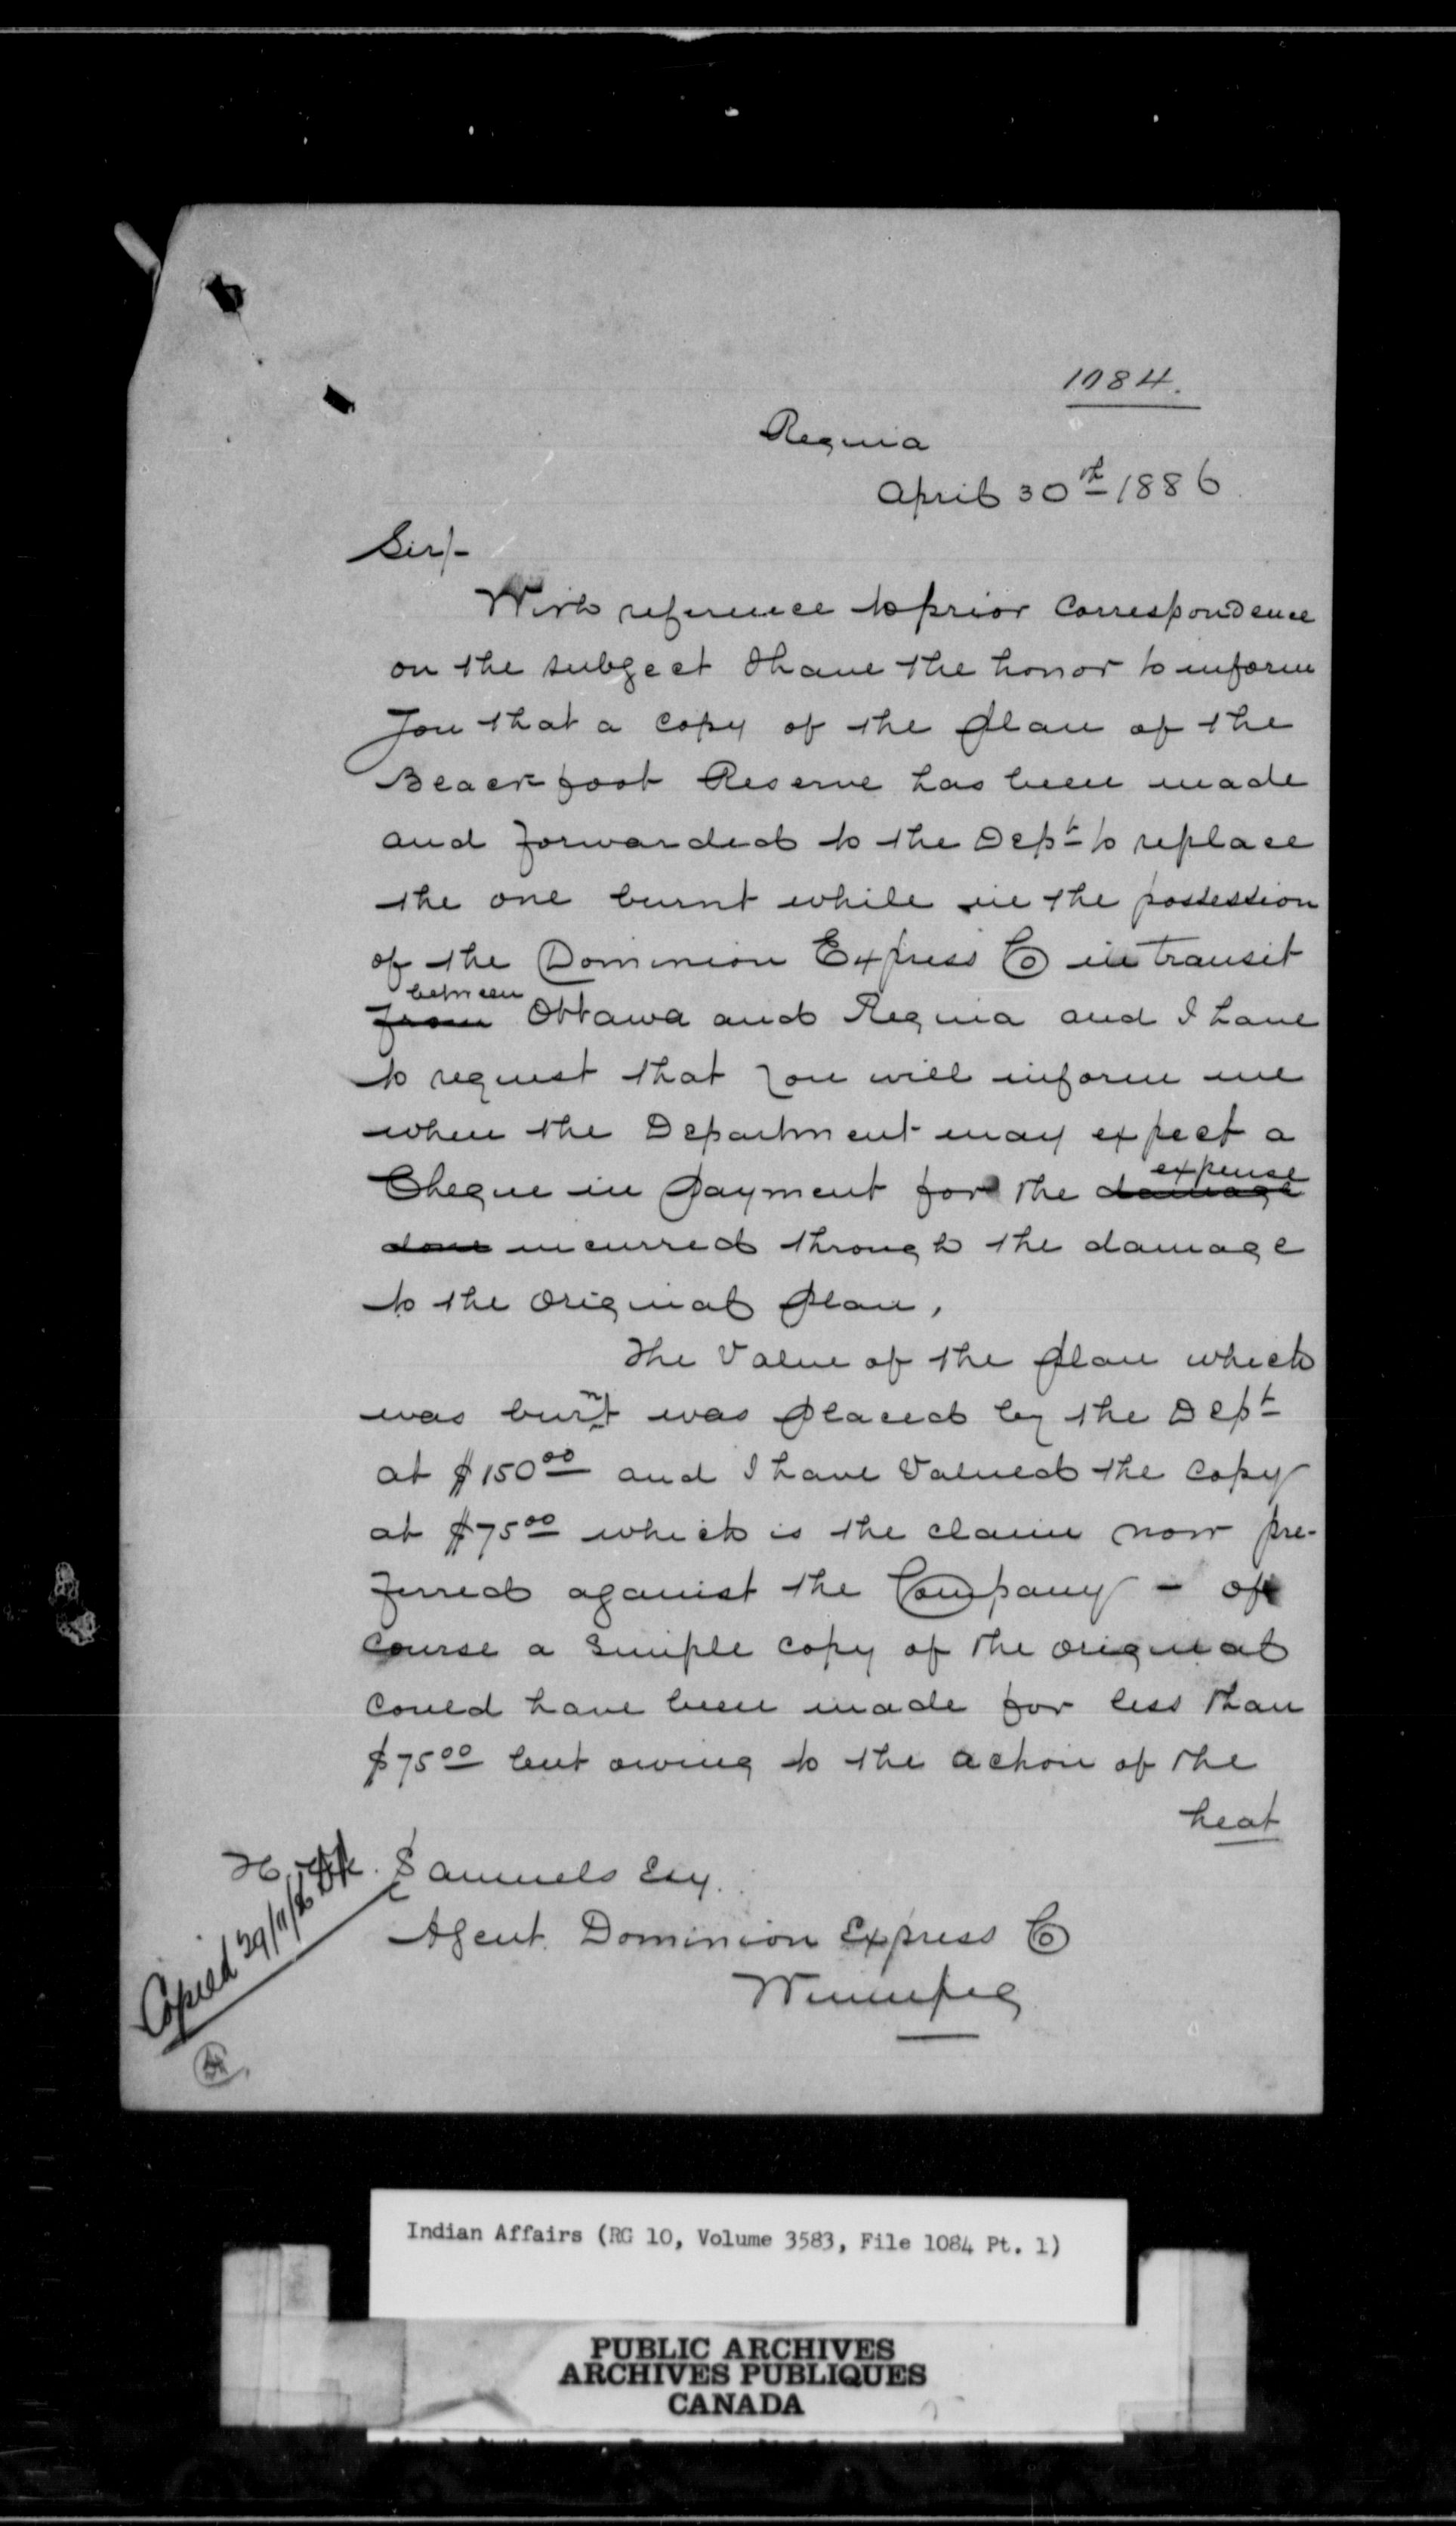 1084.
Regina
April 30th 1886
Sir/-
With reference to prior Correspondence
on the subject I have the honor to inform
you that a copy of the plan of the
Blackfoot Reserve has been made
and forwarded to the Dept to replace
the one burnt while in the possession
of the Dominion Express Co in transit
between
from Ottawa and Regina and I have
to request that you will inform me
when the Department may expect a
expense
Cheque in payment for the damage
done incurred through the damage
to the original plan,
The Value of the plan which
was burnt was placed by the Dept
at $150 00 and I have Valued the copy
at $75 00 which is the claim now pre-
ferred against the Company - of
course a simple copy of the original
could have been made for less than
$75 00 but owing to the action of the
heat
Samuels Esq.
Agent. Dominion Express Co
Winnipeg
Copied 29/11/86
Indian Affairs (RG 10, Volume 3583, File 1084 Pt. 1)
PUBLIC ARCHIVES
ARCHIVES PUBLIQUES
CANADA